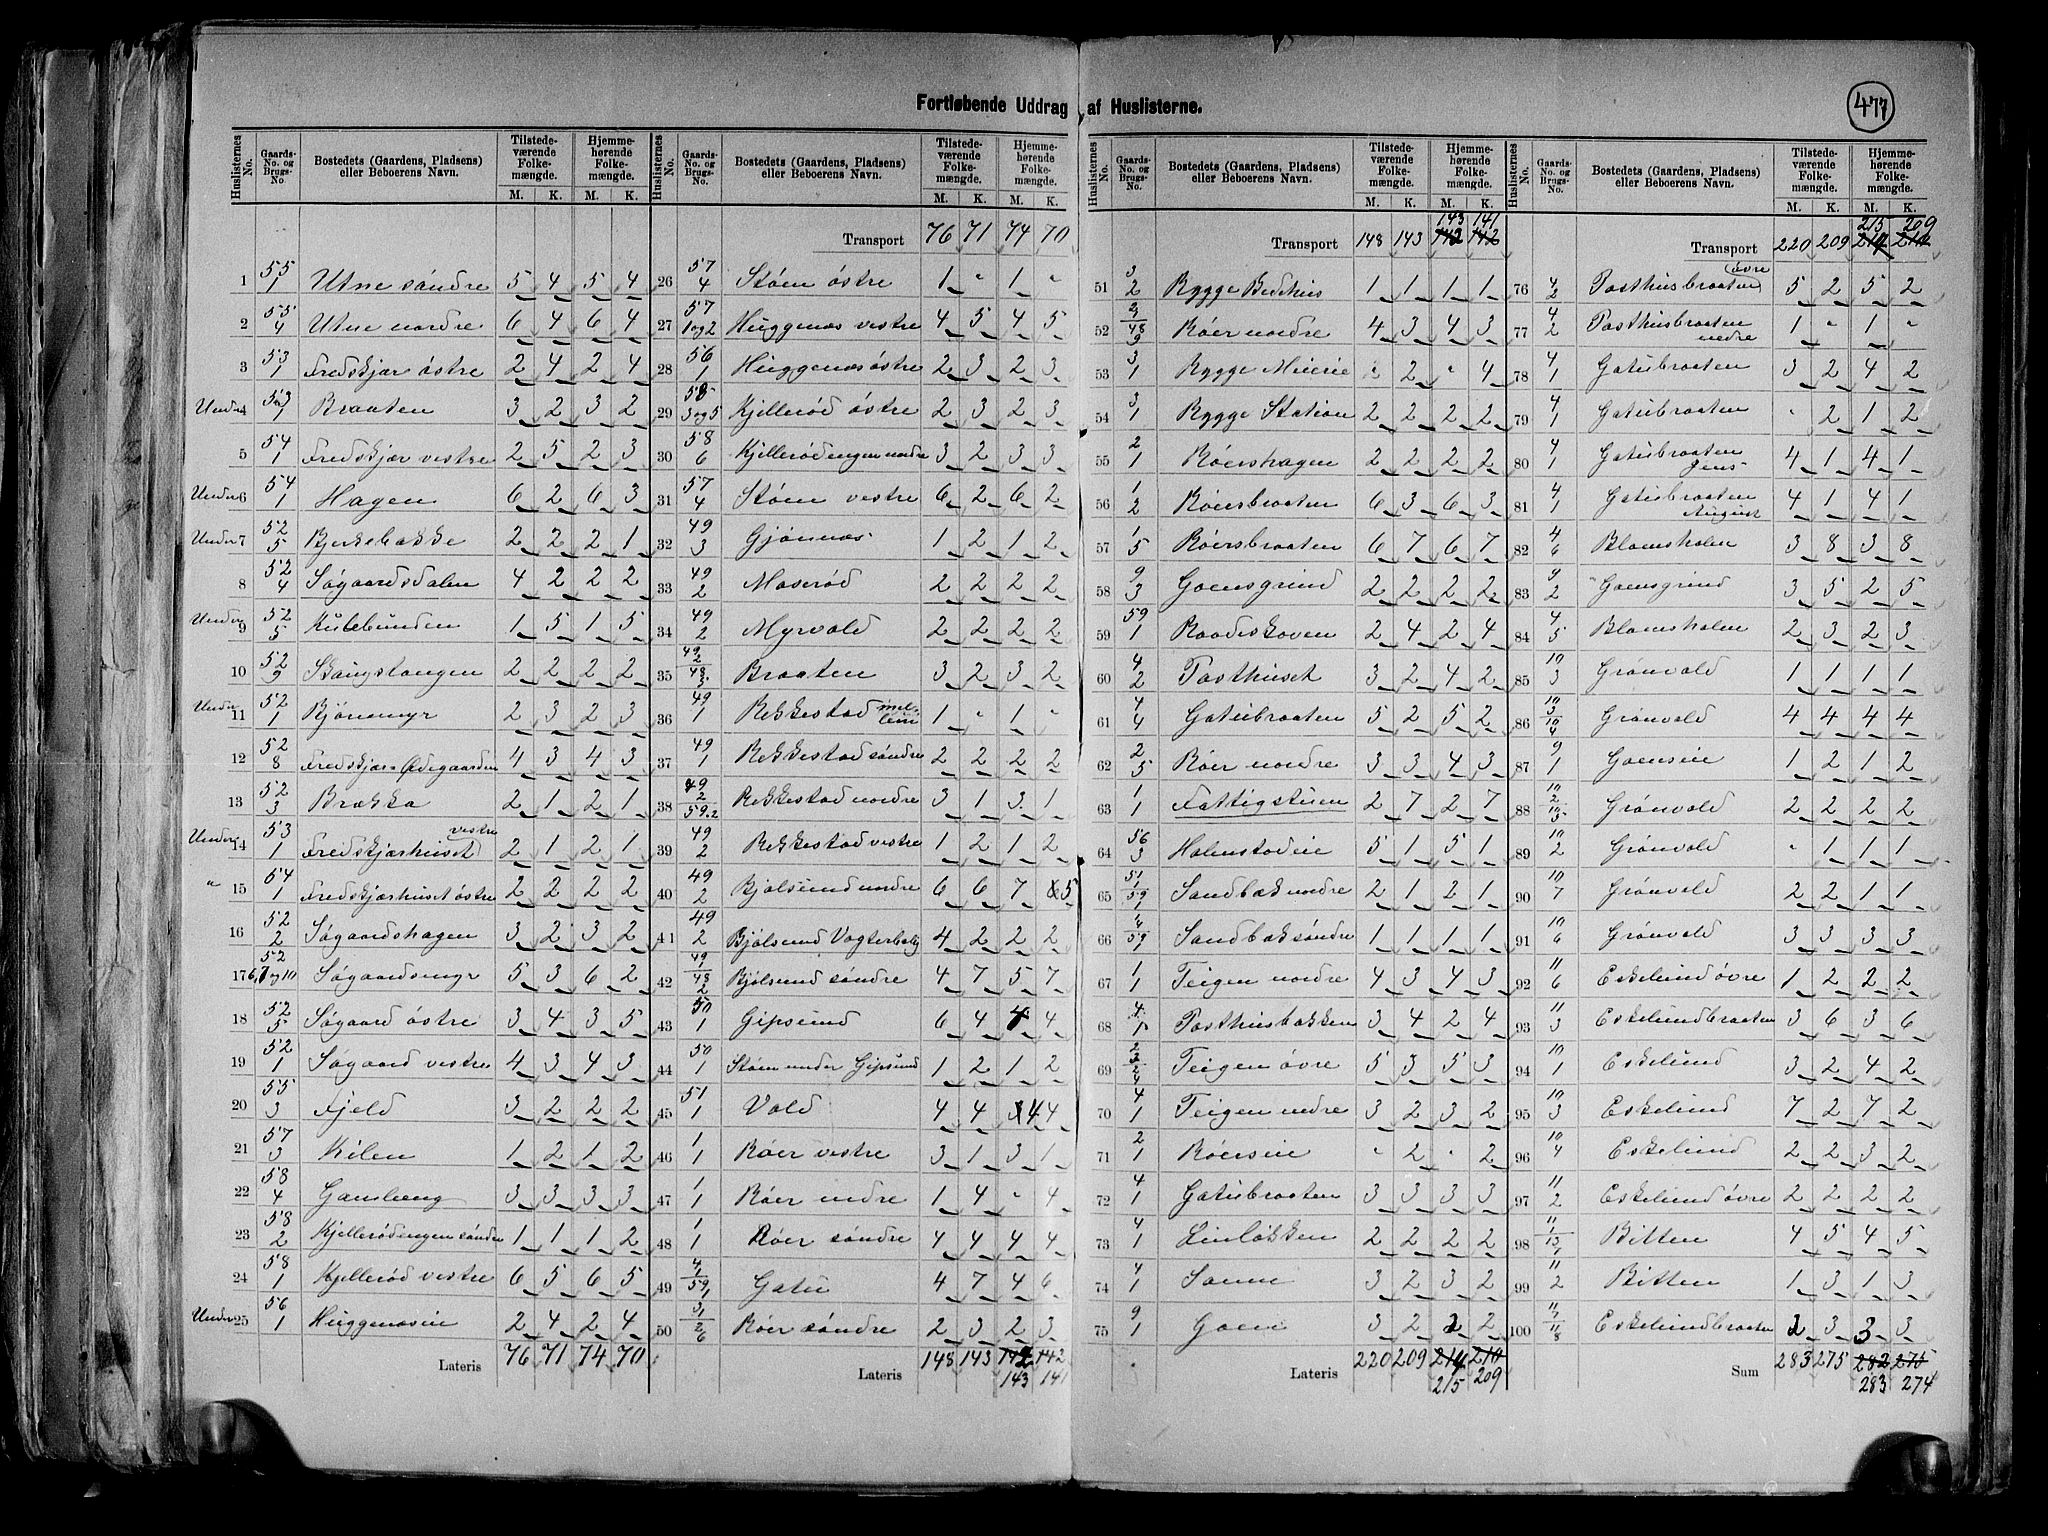 Fortløbende Uddrag af Huslisterne.
477
Huslisternes No. | Gaards-No. og Brugs-No. | Bostedets (Gaardens, Pladsens) eller Beboerens Navn. | Tilstedeværende Folkemængde. M. K. | Hjemmehørende Folkemængde. M. K.
1 55/1 Utne søndre 5 4 5 4
2 55/4 Utne nordre 6 4 6 4
3 53/1 Fredskjær østre 2 4 2 4
Under 4 53/1 Braaten 3 2 3 2
5 54/1 Fredskjær vestre 2 5 2 3
Under 6 54/1 Hagen 6 2 6 3
Under 7 52/5 Berkebakke 2 2 2 1
8 52/4 Søgaardsdalen 4 2 2 2
Under 9 52/5 Kulebunden 1 5 1 5
10 52/9 Skangstangen 2 2 2 2
Under 11 52/1 Bjønemyr 2 3 2 3
12 52/8 Fredskjær Ødegaarden 4 3 4 3
13 52/3 Brække 2 1 2 1
Under 14 53/1 Fredskjærhuset vestre 2 1 2 1
" 15 54/1 Fredskjærhuset østre 2 2 2 2
16 52/2 Søgaardshagen 3 2 3 2
17 52/6,7 og 10 Søgaardsmyr 5 3 6 2
18 52/5 Søgaard østre 3 4 3 5
19 52/1 Søgaard vestre 4 3 4 3
20 55/3 Fjeld 3 2 2 2
21 57/3 Kilen 1 2 1 2
22 58/4 Gamleeng 3 3 3 3
23 58/2 Kjellerødengen søndre 1 1 1 2
24 58/1 Kjellerød vestre 6 5 6 5
Under 25 56/1 Huggenæsie 2 4 2 4
Lateris 76 71 74 70
Huslisternes No. | Gaards-No. og Brugs-No. | Bostedets (Gaardens, Pladsens) eller Beboerens Navn. | Tilstedeværende Folkemængde. M. K. | Hjemmehørende Folkemængde. M. K.
Transport 76 71 74 70
26 57/4 Støm østre 1 " 1 "
27 57/1og2 Huggenæs vestre 4 5 4 5
28 56/1 Huggenæs østre 2 3 2 3
29 58/3og5 Kjellerød østre 2 3 2 3
30 58/6 Kjellerødengen nordre 3 2 3 3
31 57/4 Støm vestre 6 2 6 2
32 49/3 Gjønnæs 1 2 1 2
33 49/2 Moserød 2 2 2 2
34 49/2 Myrvold 2 2 2 2
35 49/2 48/3 Braaten 3 2 3 2
36 49/1 Rekkestad mellem 1 " 1 "
37 49/1 Rekkestad søndre 2 2 2 2
38 49/2 59.2 Rekkestad nordre 3 1 3 1
39 49/2 Rekkestad vestre 1 2 1 2
40 49/2 Bjølsund nordre 6 6 7 5
41 49/2 Bjølsund Vogterbolig 4 2 2 2
42 49/1 48/2 Bjølsund søndre 4 7 5 7
43 50/1 Gipsund 6 4 4 4
44 50/1 Støm under Gipsund 1 2 1 2
45 51/1 Vold 4 4 4 4
46 1/1 Røer vestre 3 1 3 1
47 1/1 Røer nedre 1 4 " 4
48 1/1 Røer søndre 4 4 4 4
49 4/1 59/1 Gatu 4 7 4 6
50 3/1 2/6 Røer søndre 2 3 2 3
Lateris 148 143 142 142
143 141
Huslisternes No. | Gaards-No. og Brugs-No. | Bostedets (Gaardens, Pladsens) eller Beboerens Navn. | Tilstedeværende Folkemængde. M. K. | Hjemmehørende Folkemængde. M. K.
143 141
Transport 148 143 142 142
51 3/2 Rygge Bedehus 1 1 1 1
52 Røer nordre 4 3 4 3
53 3/1 Rygge Meierie " 2 " 4
54 3/1 Rygge Station 2 2 2 2
55 2/1 Røershagen 2 2 2 2
56 1/2 Røersbraaten 6 3 6 3
57 1/5 Røersbraaten 6 7 6 7
58 9/3 Goensgrind 2 2 2 2
59 59/1 Raadeskoven 2 4 2 4
60 4/2 Posthuset 3 2 4 2
61 4/4 Gatubraaten 5 2 5 2
62 2/5 Røer nordre 3 3 4 3
63 1/1 Fattigstuen 2 7 2 7
64 56/3 Holmstadeie 5 1 5 1
65 51/1 59/1 Sandbæk nordre 2 1 2 1
66 4/59 Sandbæk søndre 1 1 1 1
67 1/1 Teigen nordre 4 3 4 3
68 4/1 Posthusbakken 3 4 2 4
69 2/3 2/4 Teigen øvre 5 3 5 3
70 4/1 Teigen nedre 3 2 3 2
71 2/1 Røerseie " 2 " 2
72 4/1 Gatubraaten 3 3 3 3
73 4/1 Linløkken 2 2 2 2
74 4/1 Sonne 3 2 3 2
75 9/1 Goen 3 2 2 2
Lateris 220 209 214 210
215 209
Huslisternes No. | Gaards-No. og Brugs-No. | Bostedets (Gaardens, Pladsens) eller Beboerens Navn. | Tilstedeværende Folkemængde. M. K. | Hjemmehørende Folkemængde. M. K.
215 209
Transport 220 209 214 210
76 4/2 Posthusbraaten øvre 5 2 5 2
77 4/2 Posthusbraaten nedre 1 " 1 "
78 4/1 Gatubraaten 3 2 4 2
79 4/1 Gatubraaten " 2 1 2
80 4/1 Gatubraaten Jens 4 1 4 1
81 4/1 Gatubraaten August 4 1 4 1
82 4/6 Blomsholm 3 8 3 8
83 9/2 Goensgrind 3 5 2 5
84 4/5 Blomsholm 2 3 2 3
85 10/3 Grønvold 1 1 1 1
86 10/3 10/4 Grønvold 4 4 4 4
87 9/1 Goenseie 1 2 1 2
88 10/2 10/5 Grønvold 2 2 2 2
89 10/2 Grønvold " 1 1 1
90 10/7 Grønvold 2 2 1 1
91 10/6 Grønvold 3 3 3 3
92 11/6 Eskelund øvre 1 2 2 2
93 11/3 Eskelundbraaten 3 6 3 6
94 10/1 Eskelund 3 2 4 2
95 10/3 Eskelund 7 2 7 2
96 10/4 Eskelund 2 2 3 2
97 11/2 Eskelund øvre 2 2 2 2
98 11/1 13/1 Bitten 4 5 4 5
99 11/2 Bitten 1 3 1 3
100 11/7 11/8 Eskelundbraaten 2 3 3 3
Sum 283 275 282 275
283 274